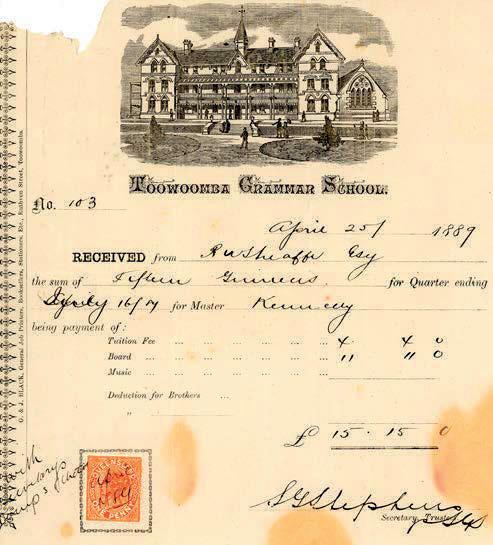 TOOWOOMBA GRAMMAR SCHOOL.
No. 103
April 25/ 1889
RECEIVED from R W Sheaffe Esq
the sum of Fifteen Guineas, for Quarter ending
16/17 for Master Kennedy
being payment of:
Tuition Fee ... ... ... ... ... ... 4 4 0
Board ... ... ... ... ... ... 11 11 0
Music ... ... ... ... ... ...
Deduction for Brothers ...
" ...
£ 15 . 15 0
S G Stephens
Secretary, Trustees
ONE PENNY
with
stamp
G. & J. BLACK, General Job Printers, Booksellers, Stationers, Etc., Ruthven Street, Toowoomba.